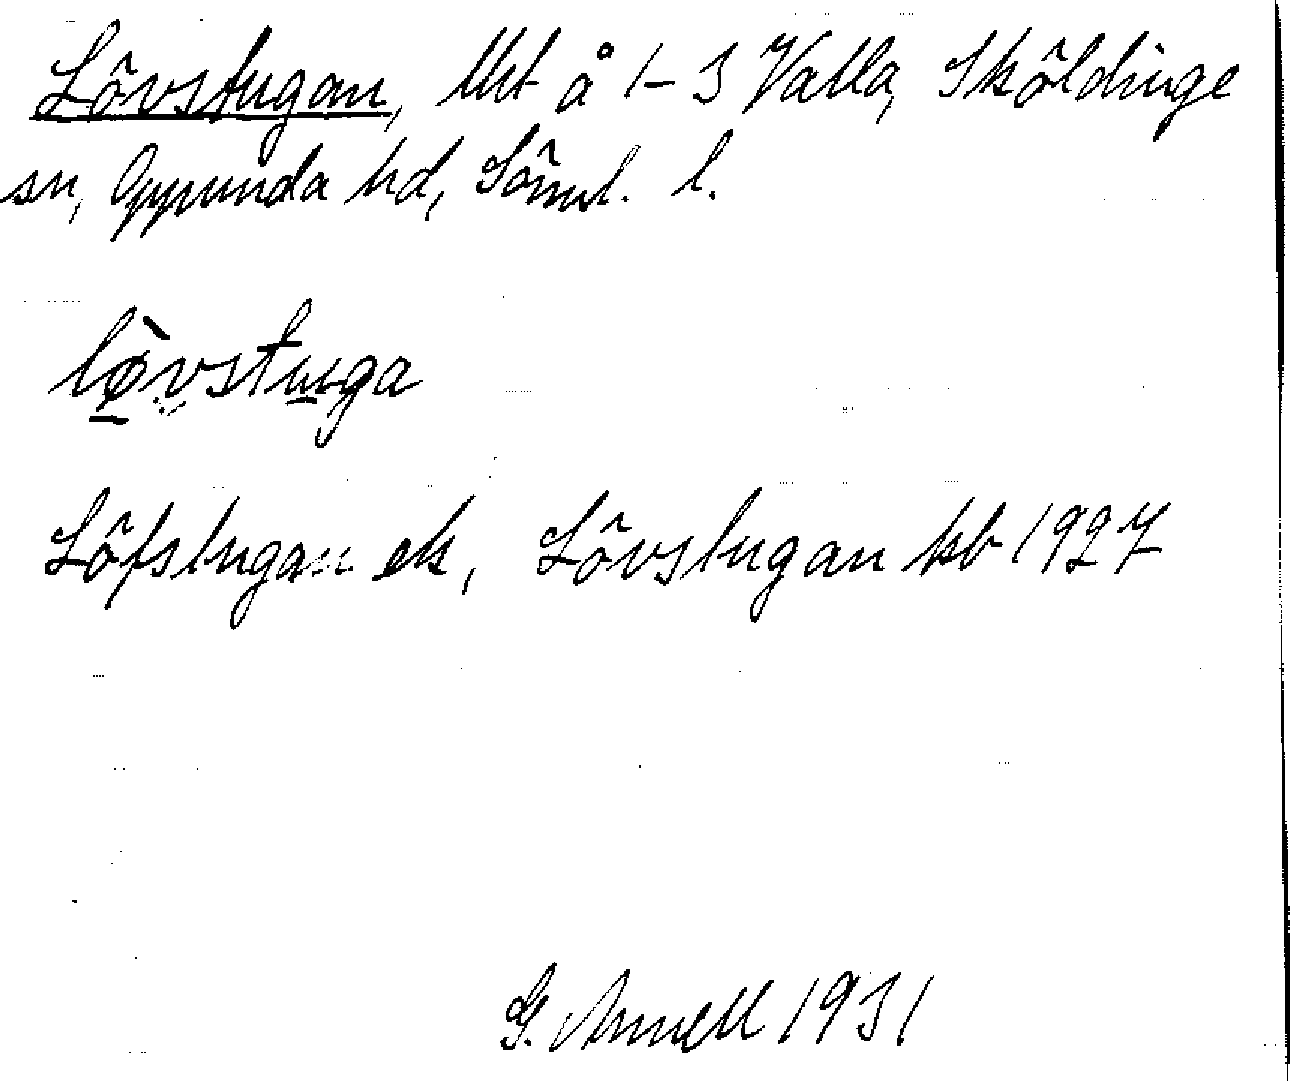 Lövstugan, lht å 1-3 Valla, Sköldinge
sn, Oppunda hd, Söml. l.
lø̀vstuga
Löfstugan ek, Lövstugan kb 1927
G. Annell 1931